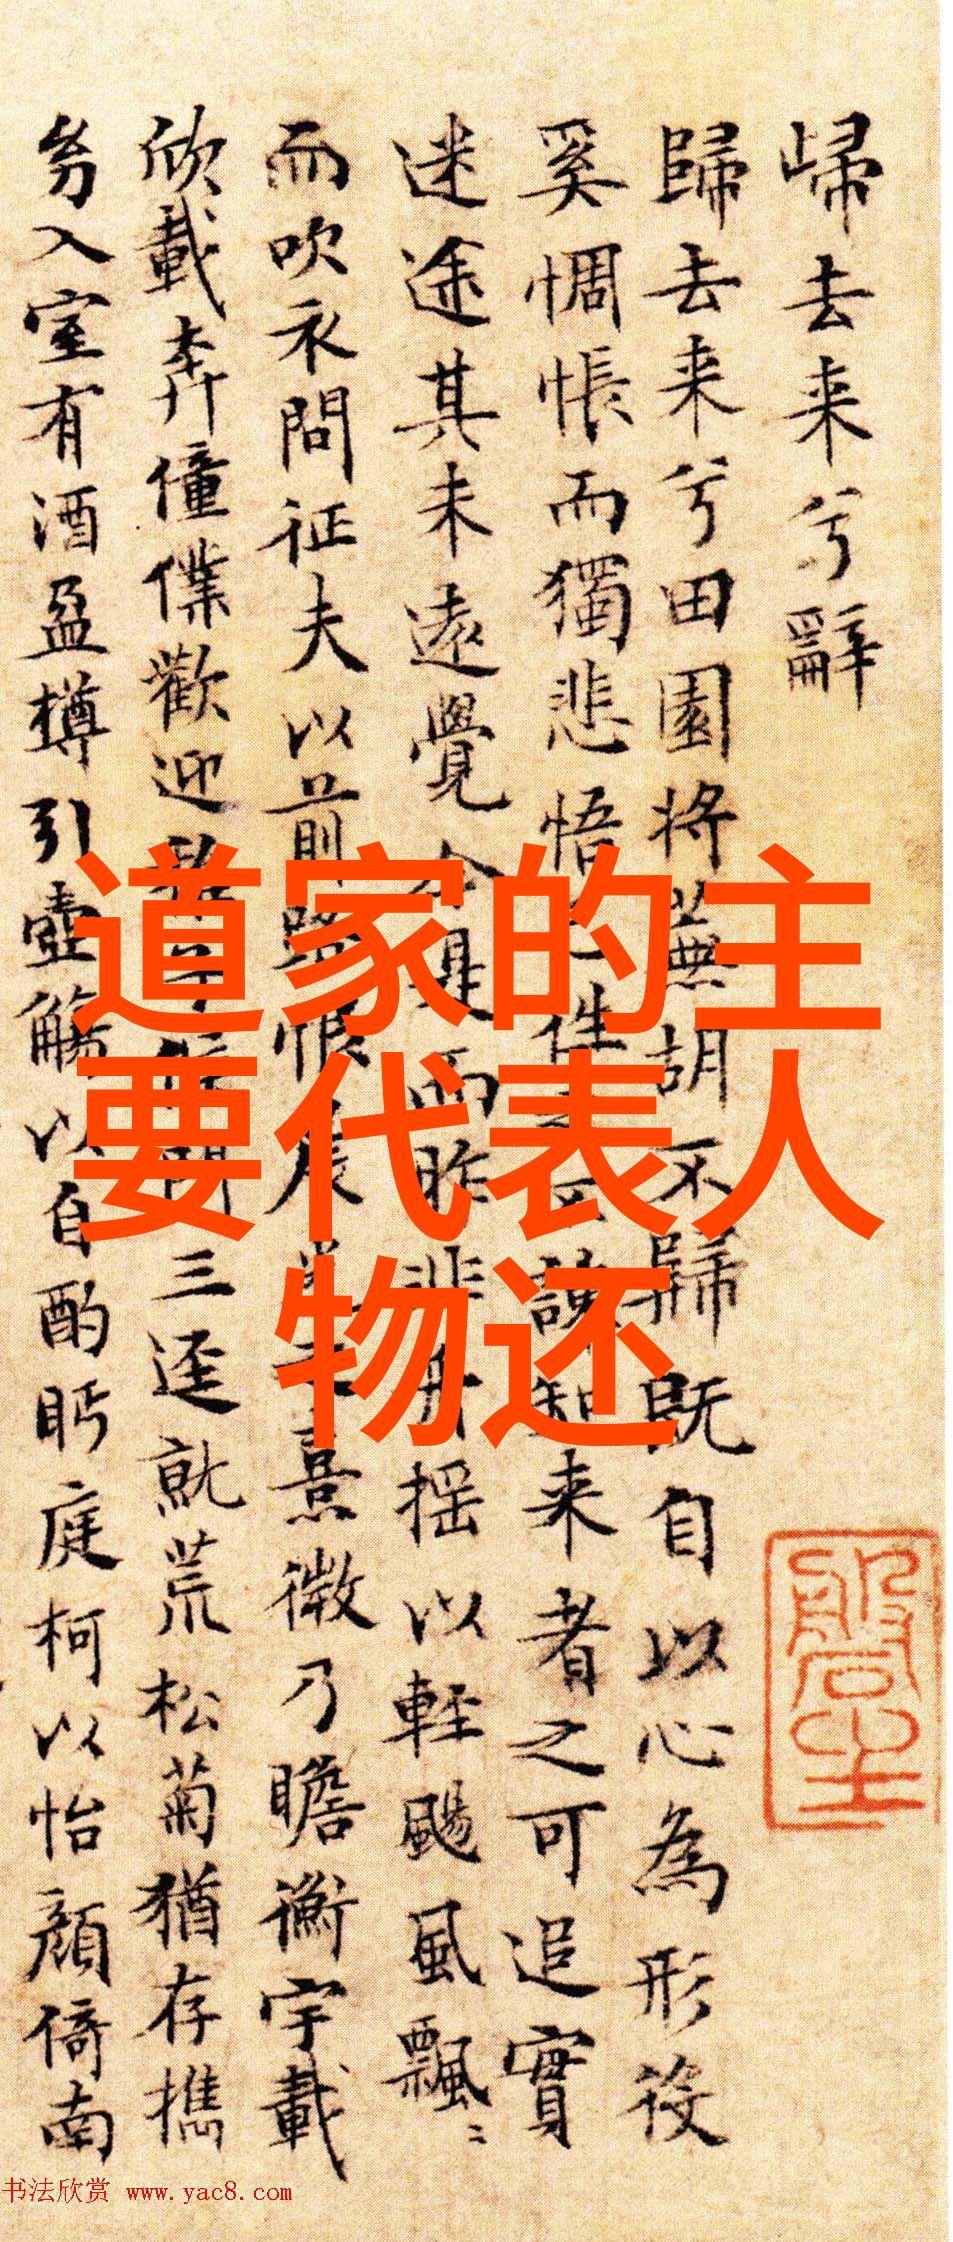 歸去来兮辭
歸去来兮田園将蕪胡不歸既自以心為形役
奚惆悵而獨悲悟 知来者之可追實
迷途其未遠覺今是而昨非舟揺以輕颺風飄〻
而吹衣問征夫以前路恨晨 熹微乃瞻衡宇載
欣載奔僮僕歡迎 三逕就荒松菊猶存携
㓜入室有酒盈樽引壺觴以自酌眄庭柯以怡顔倚南
道家的主
要代表人
物还
书法欣赏 www.yac8.com